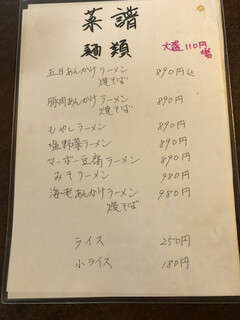 菜譜
麺類
大盛110円増
五目あんかけラーメン 890円込
焼そば
豚肉あんかけラーメン 890円
焼そば
もやしラーメン 890円
塩野菜ラーメン 890円
マーボー豆腐ラーメン 890円
みそラーメン 980円
海老あんかけラーメン 980円
焼そば
ライス 250円
小ライス 180円